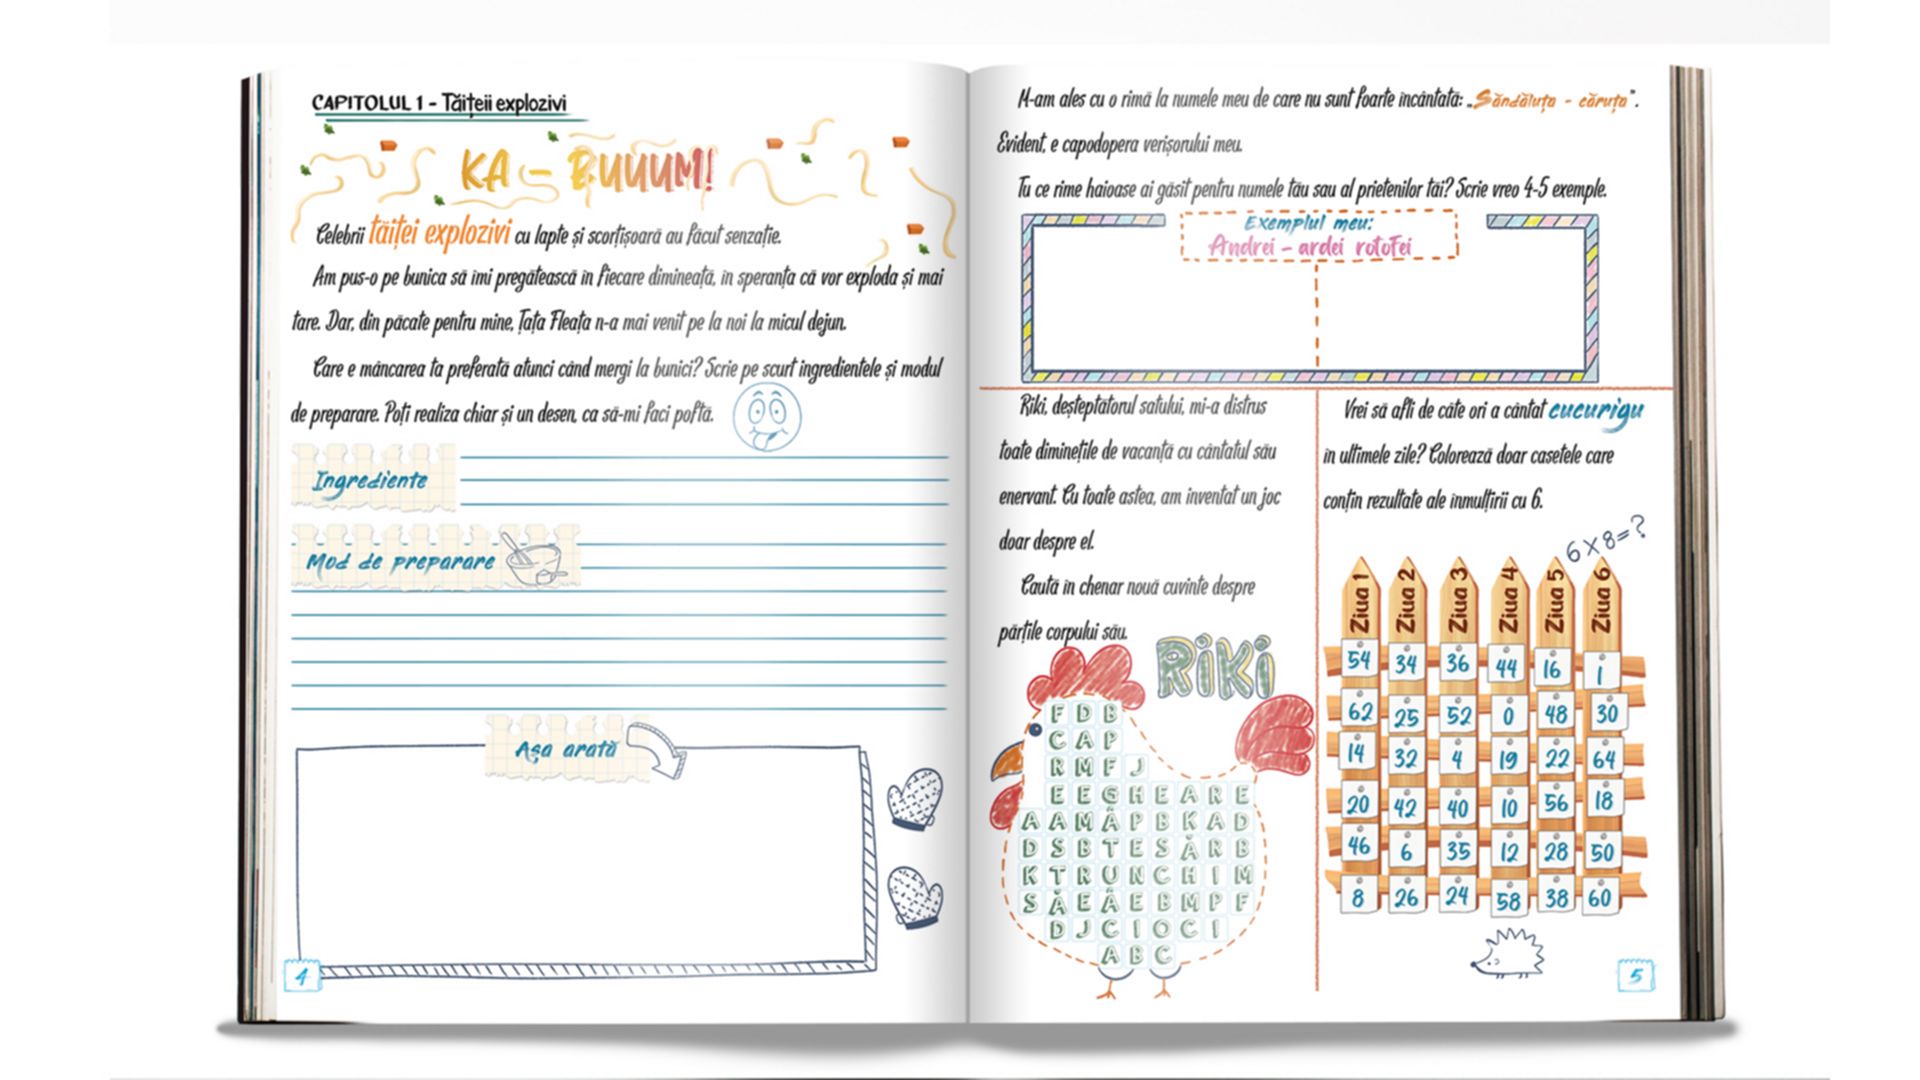 CAPITOLUL 1 - Tăițeii explozivi
KA - BUUUM!
Celebrii tăiței explozivi cu lapte și scorțișoară au făcut senzație.
Am pus-o pe bunica să îmi pregătească în fiecare dimineață, în speranța că vor exploda și mai
tare. Dar, din păcate pentru mine, Țața Fleața n-a mai venit pe la noi la micul dejun.
Care e mâncarea ta preferată atunci când mergi la bunici? Scrie pe scurt ingredientele și modul
de preparare. Poți realiza chiar și un desen, ca să-mi faci poftă.
Ingrediente
Mod de preparare
Așa arată
4
M-am ales cu o rimă la numele meu de care nu sunt foarte încântată: „Săndăluța - căruța”.
Evident, e capodopera verișorului meu.
Tu ce rime haioase ai găsit pentru numele tău sau al prietenilor tăi? Scrie vreo 4-5 exemple.
Exemplul meu:
Andrei - ardei rotofei
Riki, deșteptătorul satului, mi-a distrus
toate diminețile de vacanță cu cântatul său
enervant. Cu toate astea, am inventat un joc
doar despre el.
Caută în chenar nouă cuvinte despre
părțile corpului său.
RiKi
F D B
C A P
R M F J
E E G H E A R E
A A M Â P B K A D
D S B T E S Ă R B
K T R U N C H I M
S Ă E Ă E B M P F
D J C I O C I
A B C
Vrei să afli de câte ori a cântat cucurigu
în ultimele zile? Colorează doar casetele care
conțin rezultate ale înmulțirii cu 6.
6x8=?
Ziua 1 Ziua 2 Ziua 3 Ziua 4 Ziua 5 Ziua 6
54 34 36 44 16 1
62 25 52 0 48 30
14 32 4 19 22 64
20 42 40 10 56 18
46 6 35 12 28 50
8 26 24 58 38 60
5